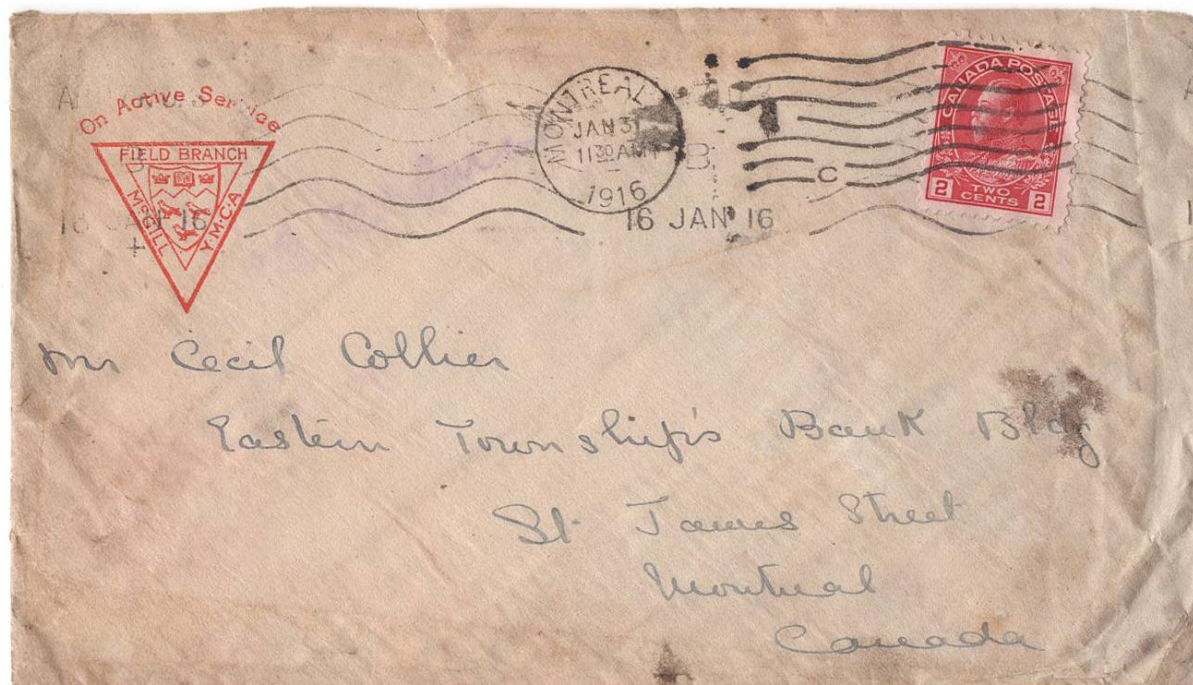 On Active Service
FIELD BRANCH
McGILL Y.M.C.A
MONTREAL
JAN 31
11 30 AM
1916
B.
C
16 JAN 16
16 JAN 16
CANADA POSTAGE
2 TWO CENTS 2
Mr Cecil Collier
Eastern Township's Bank Bldg
St James Street
Montreal
Canada